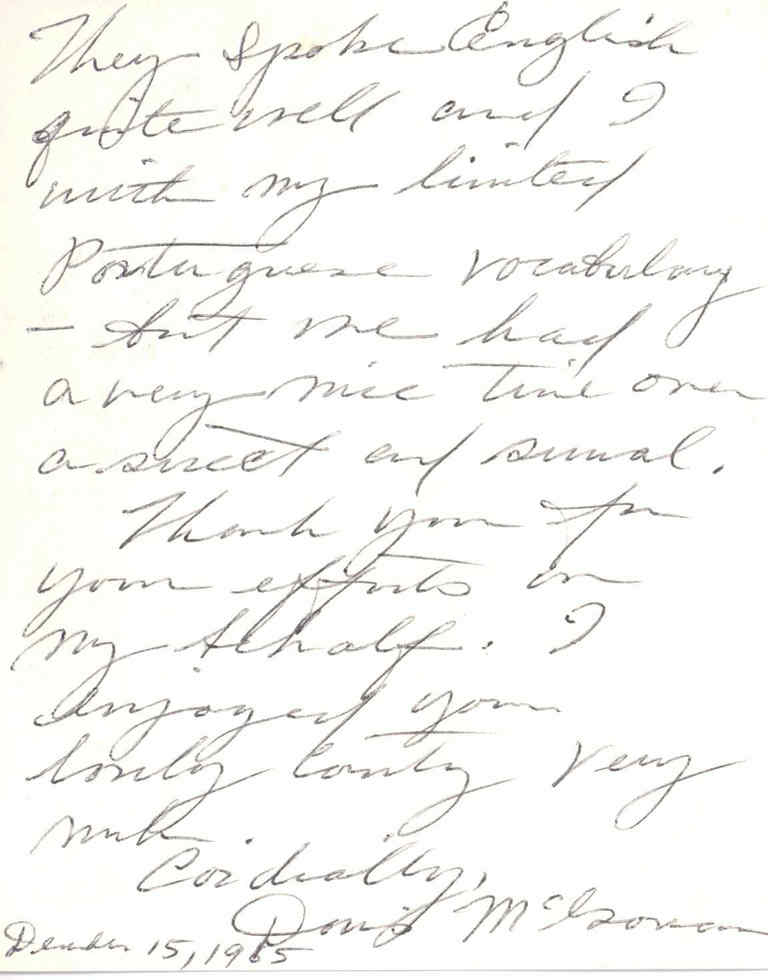 They spoke English
quite well and I
with my limited
Portuguese vocabulary
- but we had
a very nice time over
a sweet and
Thank you for
your efforts on
my behalf. I
enjoyed your
lovely country very
much.
Cordially,
Doris McGowan
December 15, 1965